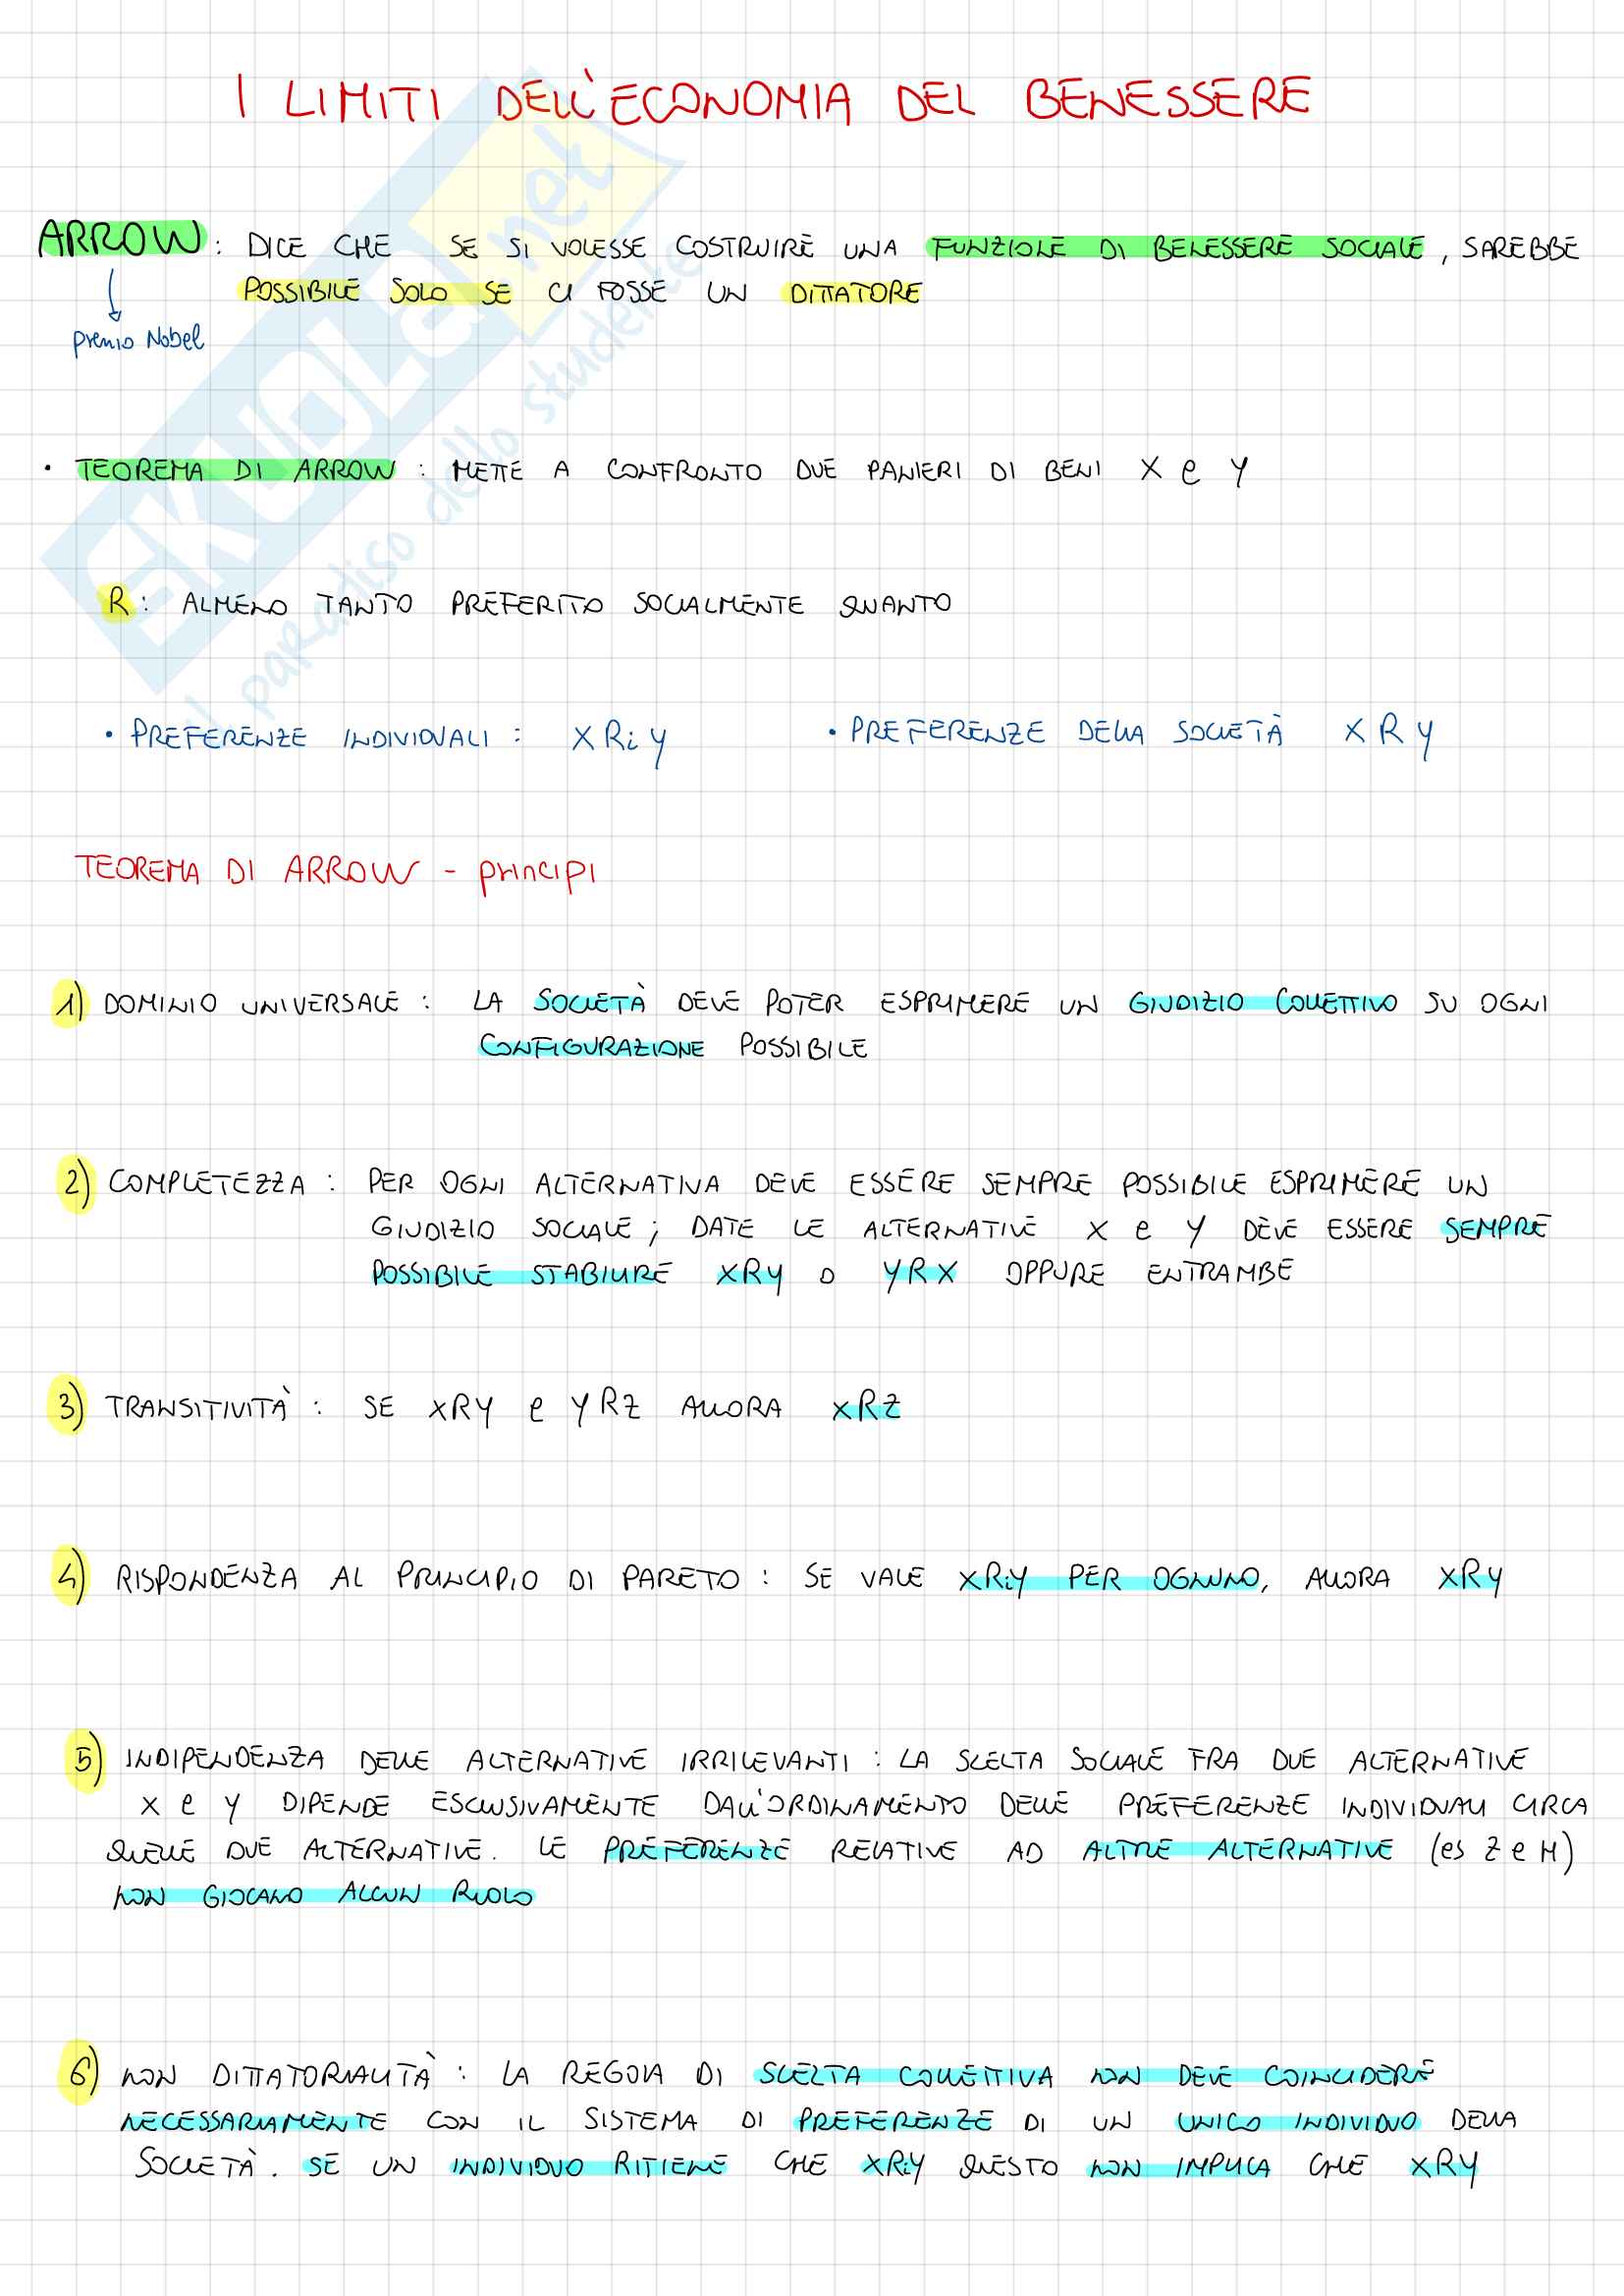 I LIMITI DELL'ECONOMIA DEL BENESSERE
ARROW: DICE CHE SE SI VOLESSE COSTRUIRE UNA FUNZIONE DI BENESSERE SOCIALE, SAREBBE
POSSIBILE SOLO SE CI FOSSE UN DITTATORE
premio Nobel
• TEOREMA DI ARROW: METTE A CONFRONTO DUE PANIERI DI BENI X e Y
R: ALMENO TANTO PREFERITO SOCIALMENTE QUANTO
• PREFERENZE INDIVIDUALI: X Ri Y
• PREFERENZE DELLA SOCIETÀ X R Y
TEOREMA DI ARROW - principi
1) DOMINIO UNIVERSALE: LA SOCIETÀ DEVE POTER ESPRIMERE UN GIUDIZIO COLLETTIVO SU OGNI
CONFIGURAZIONE POSSIBILE
2) COMPLETEZZA: PER OGNI ALTERNATIVA DEVE ESSERE SEMPRE POSSIBILE ESPRIMERE UN
GIUDIZIO SOCIALE; DATE LE ALTERNATIVE X e Y DEVE ESSERE SEMPRE
POSSIBILE STABILIRE XRY O YRX OPPURE ENTRAMBE
3) TRANSITIVITÀ: SE XRY e YRZ ALLORA XRZ
4) RISPONDENZA AL PRINCIPIO DI PARETO: SE VALE XRiY PER OGNUNO, ALLORA XRY
5) INDIPENDENZA DELLE ALTERNATIVE IRRILEVANTI: LA SCELTA SOCIALE FRA DUE ALTERNATIVE
X e Y DIPENDE ESCLUSIVAMENTE DALL'ORDINAMENTO DELLE PREFERENZE INDIVIDUALI CIRCA
QUELLE DUE ALTERNATIVE. LE PREFERENZE RELATIVE AD ALTRE ALTERNATIVE (es Z e M)
NON GIOCANO ALCUN RUOLO
6) NON DITTATORIALITÀ: LA REGOLA DI SCELTA COLLETTIVA NON DEVE COINCIDERE
NECESSARIAMENTE CON IL SISTEMA DI PREFERENZE DI UN UNICO INDIVIDUO DELLA
SOCIETÀ. SE UN INDIVIDUO RITIENE CHE XRiY QUESTO NON IMPLICA CHE XRY
SKUOLA.net
il paradiso dello studente